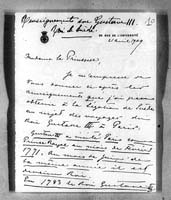 Renseignements sur Gustave III
Roi de Suède
10
58 RUE DE L'UNIVERSITÉ
Avril 1904
Madame la Princesse,
Je m'empresse de
vous donner ci après les
renseignements que j'ai pu
obtenir à la Légation de Suède
au sujet des voyages du
Roi Gustave III à Paris.
Gustave a visité Paris
Prince Royal au mois de Février
1771. Au mois de
la même année il est
devenu Roi.
En 1783 le Roi Gustave III